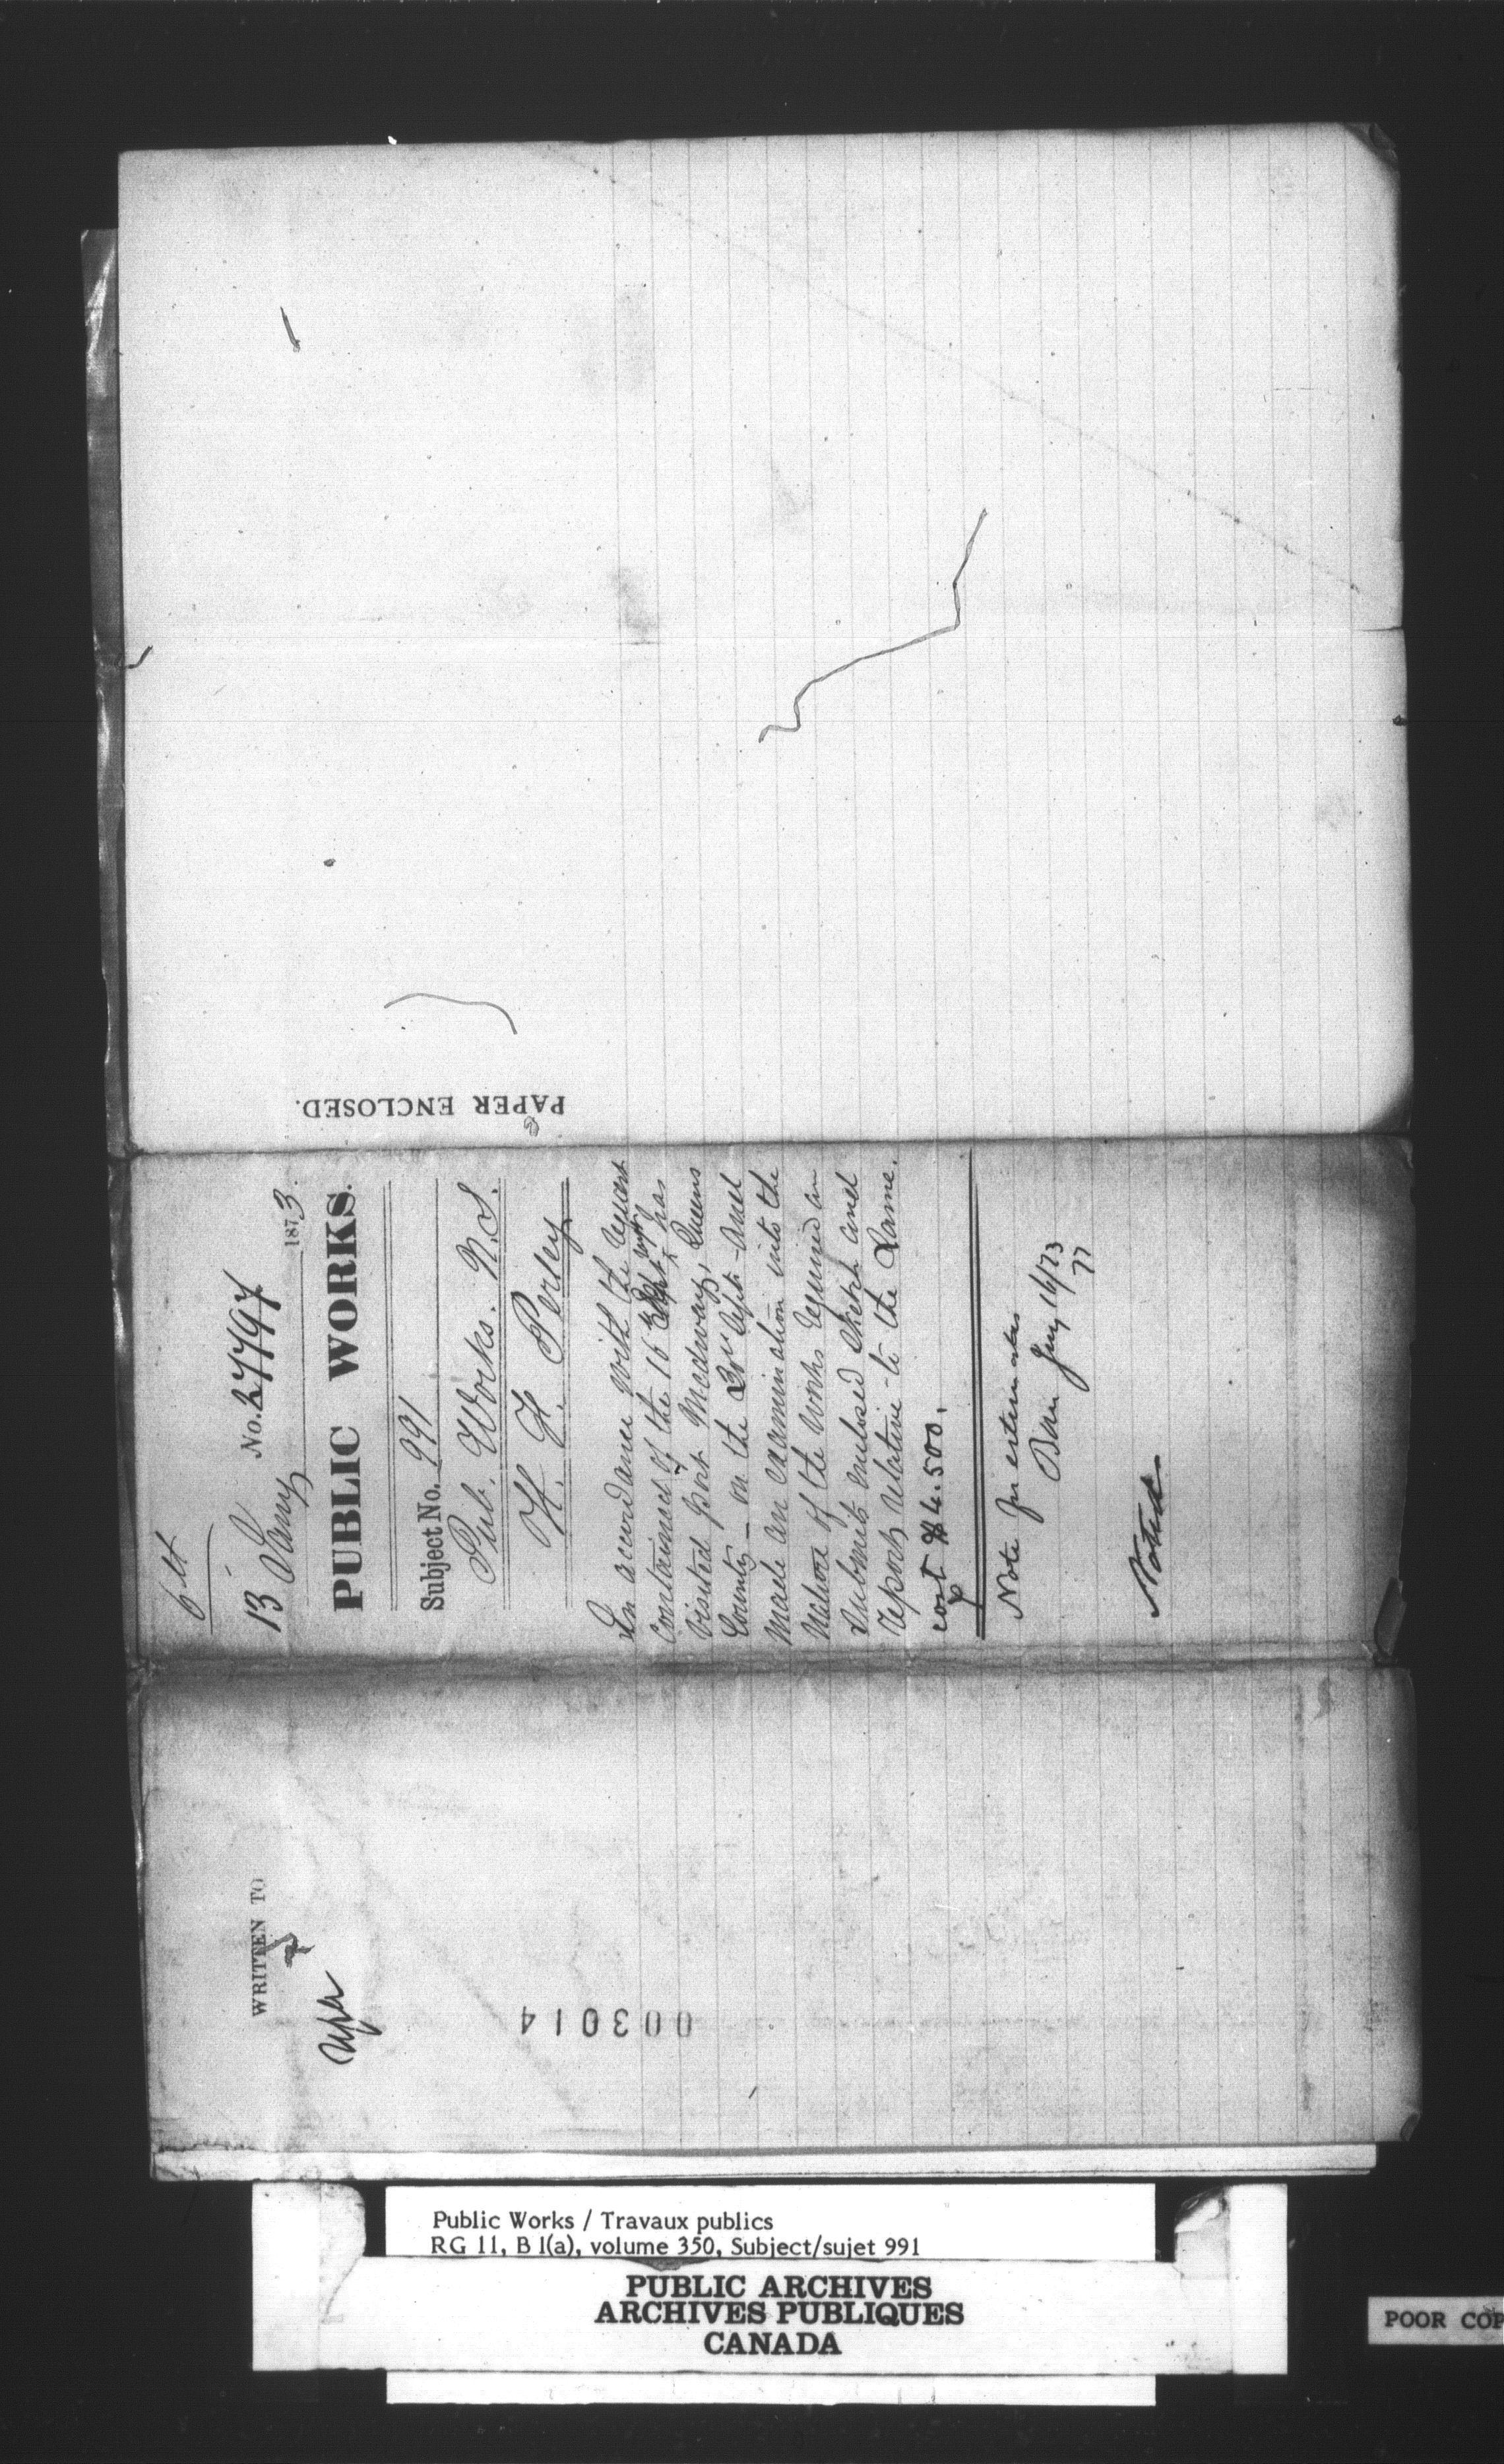 PAPER ENCLOSED.
6 lt
No. 27797
13 Jany 1873.
PUBLIC WORKS.
Subject No. 991
Pub. Works. N.S.
H. F. Perley
In accordance with the request
contained of the 16th Sept has
visited Port Medway, Queens
County - on the Sept - and
made an examination into the
nature of the works required an
submits enclosed sketch and
report relative to the same.
cost $4.500.
Note for estimates
Jany 16/73
Noted
WRITTEN TO
003014
Public Works / Travaux publics
RG 11, B 1(a), volume 350, Subject/sujet 991
PUBLIC ARCHIVES
ARCHIVES PUBLIQUES
CANADA
POOR COP